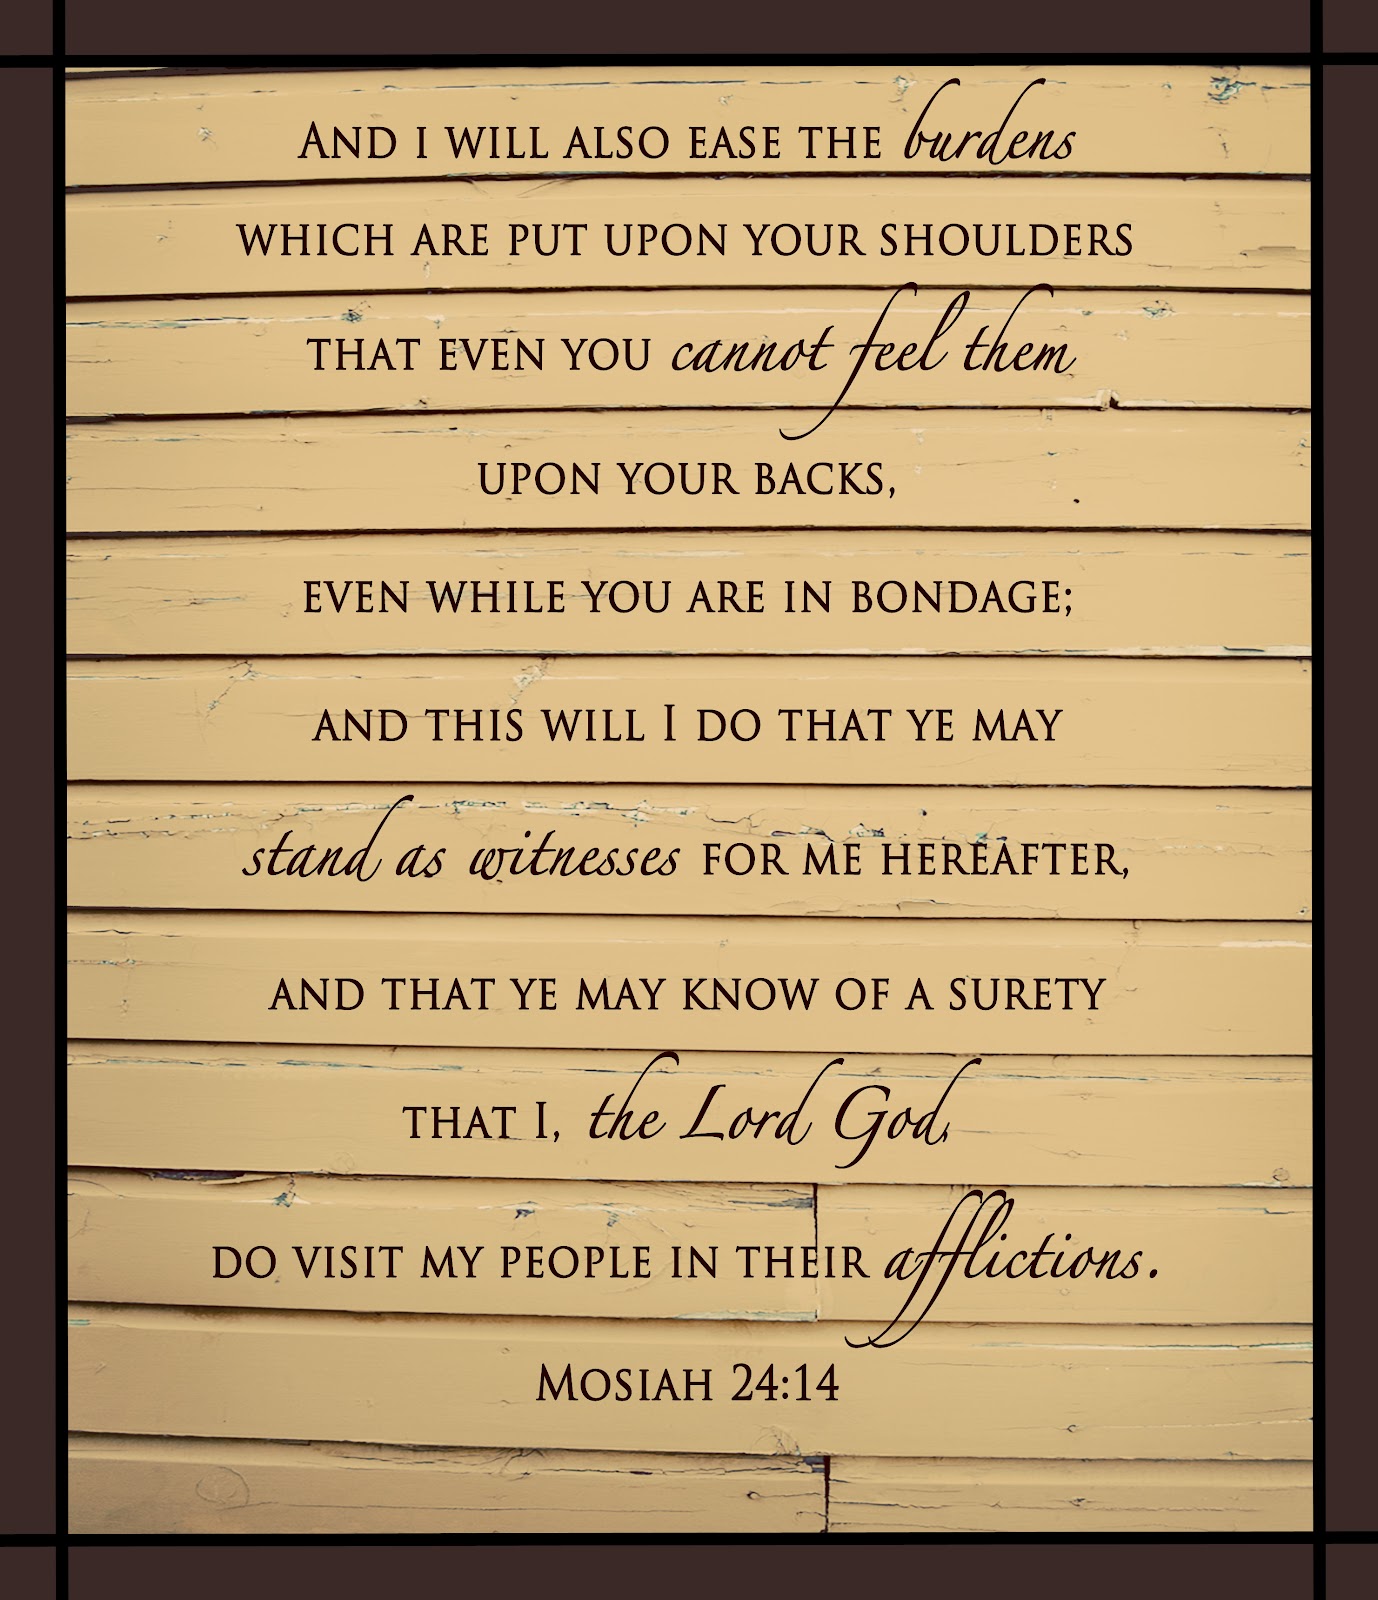 And i will also ease the burdens
which are put upon your shoulders
that even you cannot feel them
upon your backs,
even while you are in bondage;
and this will I do that ye may
stand as witnesses for me hereafter,
and that ye may know of a surety
that I, the Lord God,
do visit my people in their afflictions.
Mosiah 24:14